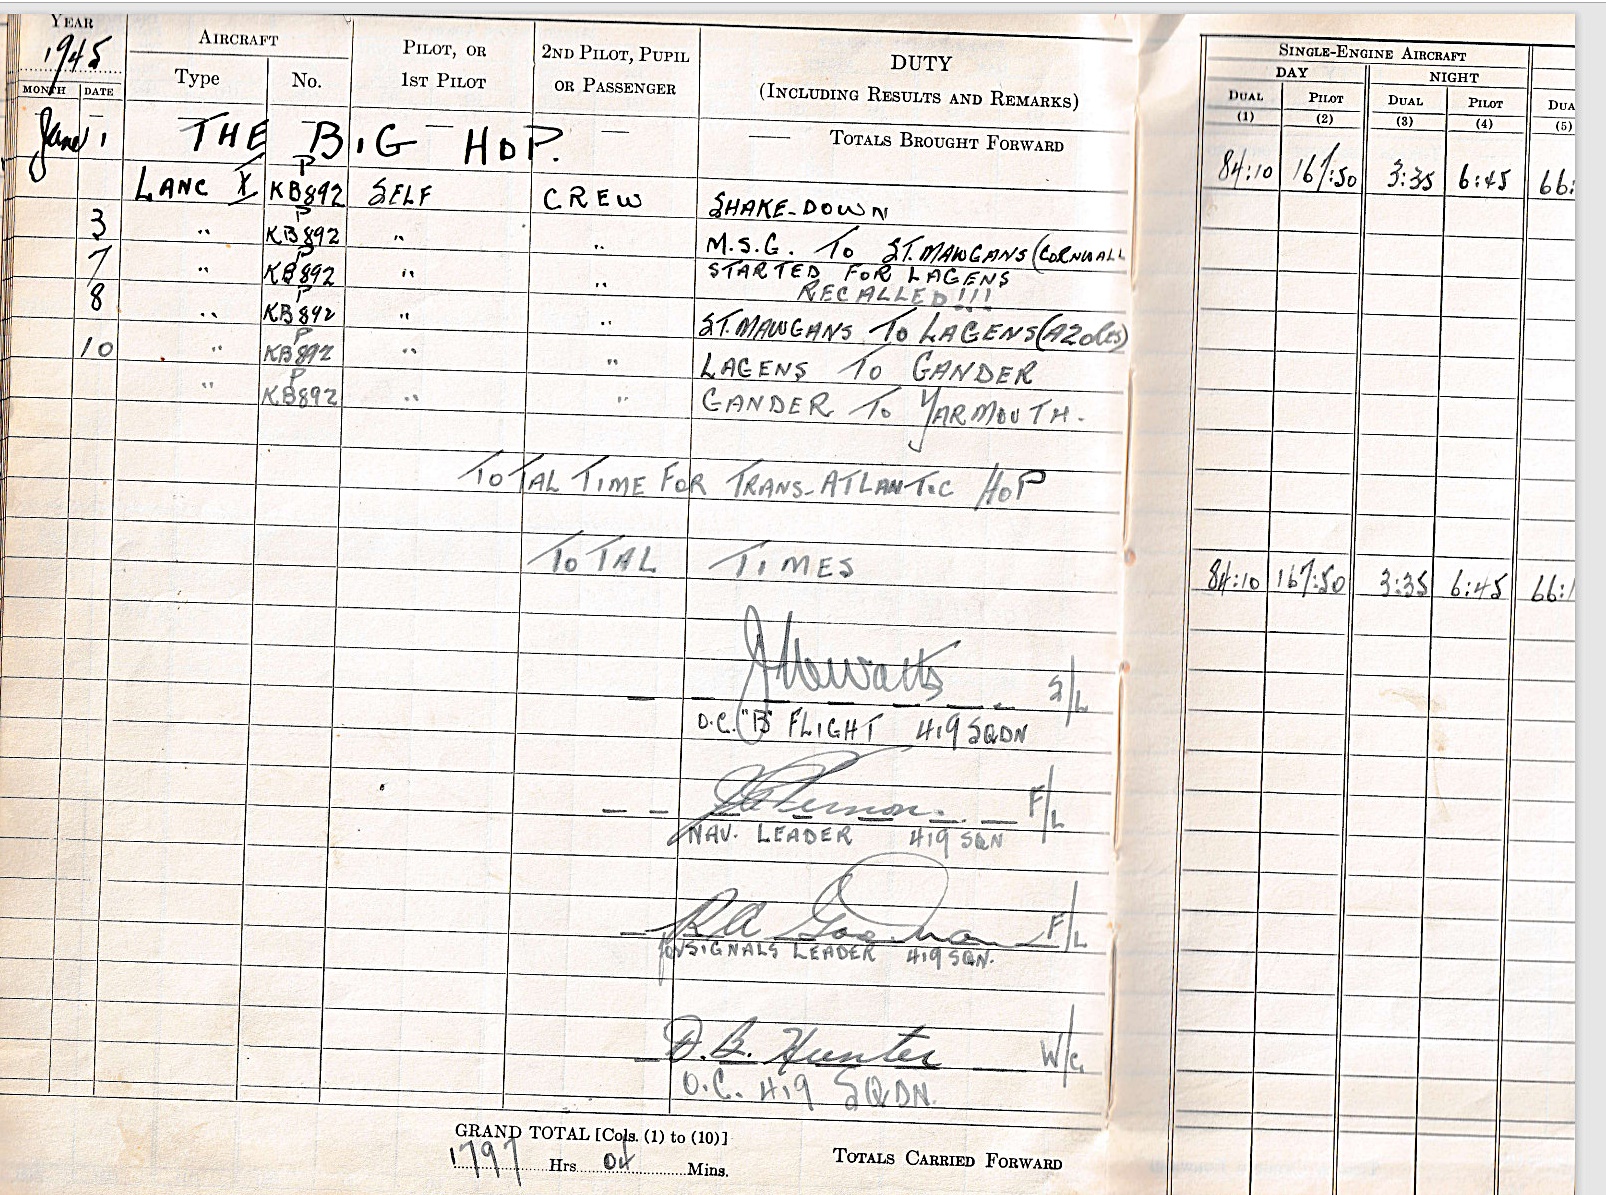 YEAR 1945
AIRCRAFT
Type No.
PILOT, OR 1ST PILOT
2ND PILOT, PUPIL OR PASSENGER
DUTY
(INCLUDING RESULTS AND REMARKS)
SINGLE-ENGINE AIRCRAFT
DAY NIGHT
MONTH DATE
DUAL PILOT DUAL PILOT DUA
(1) (2) (3) (4) (5)
June 1 THE BIG HOP. — — TOTALS BROUGHT FORWARD
84:10 167:50 3:35 6:45 66:
LANC X P KB892 SELF CREW SHAKE-DOWN
3 " P KB892 " " M.S.G. TO ST. MAWGANS (CORNWALL
7 " P KB892 " " STARTED FOR LAGENS
RECALLED!!!
8 " P KB892 " " ST. MAWGANS TO LAGENS (AZORES)
10 " P KB892 " " LAGENS TO GANDER
" P KB892 " " GANDER TO YARMOUTH.
TOTAL TIME FOR TRANS-ATLANTIC HOP
TOTAL TIMES 84:10 167:50 3:35 6:45 66:1
S/L
O.C. "B" FLIGHT 419 SQDN
F/L
NAV. LEADER 419 SQN
F/L
for SIGNALS LEADER 419 SQN.
D.B. Hunter W/C
O.C. 419 SQDN.
GRAND TOTAL [Cols. (1) to (10)]
1797 Hrs 04 Mins.
TOTALS CARRIED FORWARD